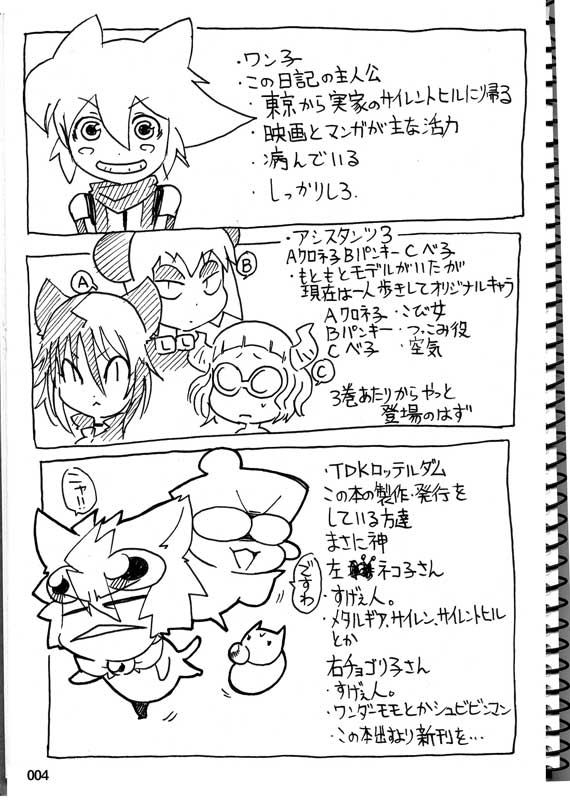 ・ワン子
・この日記の主人公
・東京から実家のサイレントヒルに帰る
・映画とマンガが主な活力
・病んでいる
・しっかりしろ.
・アシスタンツ3
Aクロネ子 Bパンキー C ベ子
・もともとモデルがいたが
現在は一人歩きしてオリジナルキャラ
Aクロネ子・こび女
Bパンキー・つっこみ役
C ベ子・空気
3巻あたりからやっと
登場のはず
A
B
C
ニャ!!
ですわ
・TDKロッテルダム
この本の製作・発行を
している方達
まさに神
左 ネコ子さん
・すげぇ人。
・メタルギア、サイレン、サイレントヒル
とか
右チョゴリ子さん
・すげぇ人。
・ワンダーモモとかシュビビンマン
・この本出すより新刊を…
004